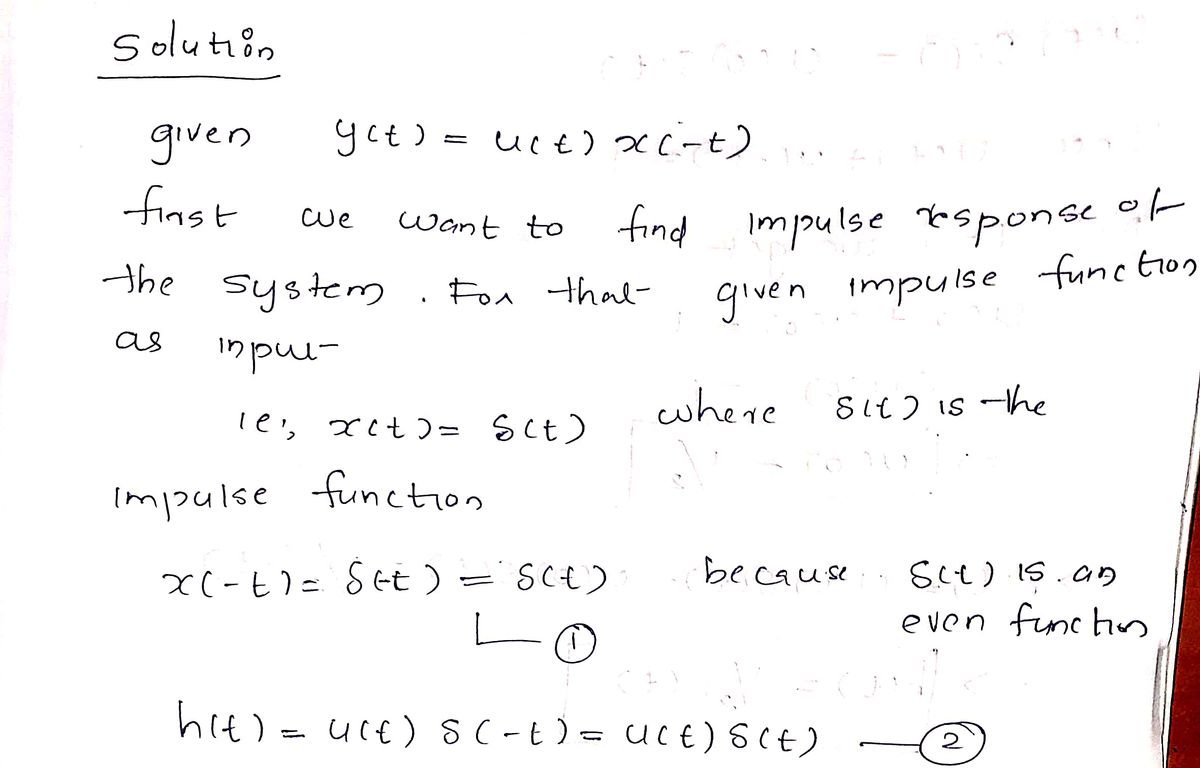 Solution
given y(t) = u(t) x(-t)
first we want to find impulse response of
the system. For that given impulse function
as input
ie', x(t) = δ(t) where δ(t) is the
impulse function
x(-t) = δ(-t) = δ(t) because δ(t) is an
even function
①
h(t) = u(t) δ(-t) = u(t) δ(t) — ②